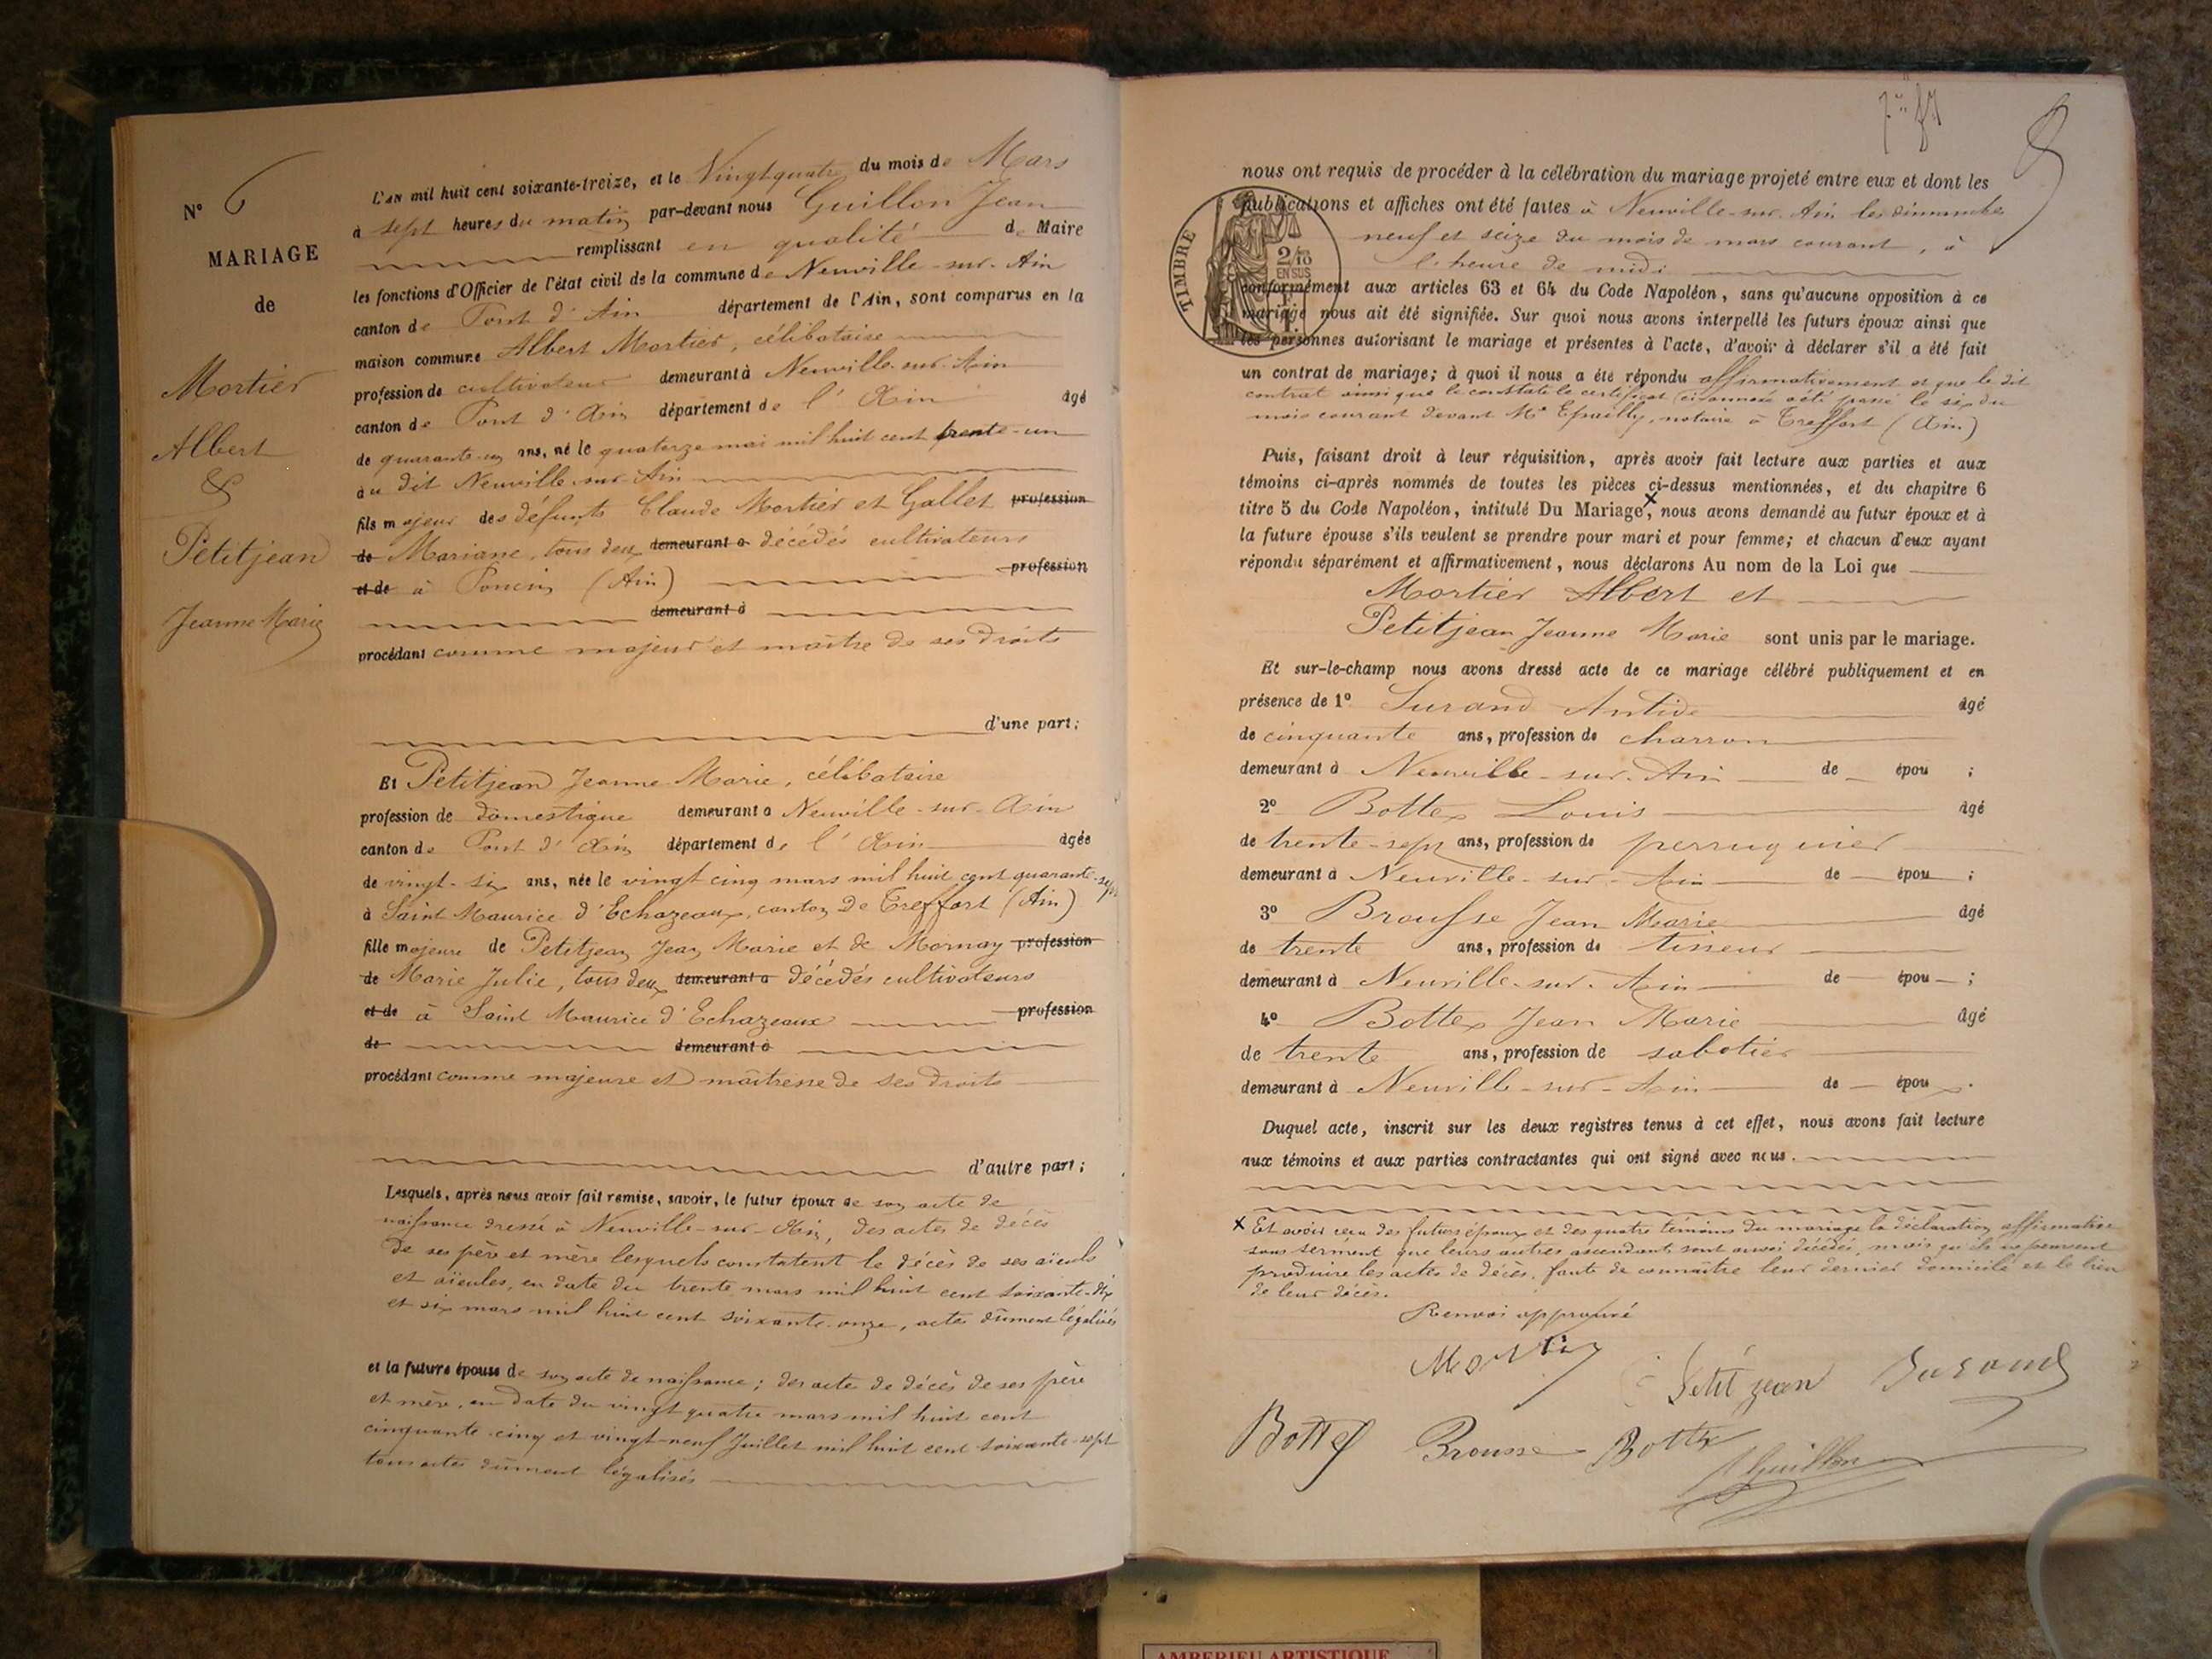 N° 6
MARIAGE
de
Mortier
Albert
&
Petitjean
Jeanne Marie
L'an mil huit cent soixante-treize, et le Vingt quatre du mois de Mars
à sept heures du matin par-devant nous Guillon Jean
remplissant en qualité de Maire
les fonctions d'Officier de l'état civil de la commune de Neuville-sur-Ain
canton de Pont d'Ain département de l'Ain, sont comparus en la
maison commune Albert Mortier, célibataire
profession de cultivateur demeurant à Neuville-sur-Ain
canton de Pont d'Ain département de l'Ain âgé
de quarante-un ans, né le quatorze mai mil huit cent trente-un
au dit Neuville-sur-Ain
fils majeur des défunts Claude Mortier et Gallet profession
de Mariane, tous deux demeurant à décédés cultivateurs
et de à Poncin (Ain) profession
demeurant à
procédant comme majeur et maître de ses droits
d'une part;
Et Petitjean Jeanne Marie, célibataire
profession de domestique demeurant à Neuville-sur-Ain
canton de Pont d'Ain département de l'Ain âgée
de vingt-six ans, née le vingt cinq mars mil huit cent quarante-sept
à Saint Maurice d'Echazeaux, canton de Treffort (Ain)
fille majeure de Petitjean Jean Marie et de Mornay profession
de Marie Julie, tous deux demeurant à décédés cultivateurs
et de à Saint Maurice d'Echazeaux profession
de demeurant à
procédant comme majeure et maîtresse de ses droits
d'autre part;
Lesquels, après nous avoir fait remise, savoir, le futur époux de son acte de
naissance dressé à Neuville-sur-Ain, des actes de décès
de ses père et mère lesquels constatent le décès de ses aïeuls
et aïeules, en date du trente mars mil huit cent soixante-dix
et six mars mil huit cent soixante-onze, actes dûment légalisés
et la future épouse de son acte de naissance; des acte de décès de ses père
et mère, en date du vingt quatre mars mil huit cent
cinquante-cinq et vingt-neuf Juillet mil huit cent soixante-sept
tous actes dûment légalisés
8
nous ont requis de procéder à la célébration du mariage projeté entre eux et dont les
publications et affiches ont été faites à Neuville-sur-Ain les dimanches
neuf et seize du mois de mars courant, à
l'heure de midi
TIMBRE
2/10
EN SUS
conformément aux articles 63 et 64 du Code Napoléon, sans qu'aucune opposition à ce
mariage nous ait été signifiée. Sur quoi nous avons interpellé les futurs époux ainsi que
les personnes autorisant le mariage et présentes à l'acte, d'avoir à déclarer s'il a été fait
un contrat de mariage; à quoi il nous a été répondu affirmativement et que le dit
contrat ainsi que le constate le certificat ci-annexé a été passé le six du
mois courant devant Me notaire à Treffort (Ain)
Puis, faisant droit à leur réquisition, après avoir fait lecture aux parties et aux
témoins ci-après nommés de toutes les pièces ci-dessus mentionnées, et du chapitre 6
titre 5 du Code Napoléon, intitulé Du Mariage x, nous avons demandé au futur époux et à
la future épouse s'ils veulent se prendre pour mari et pour femme; et chacun d'eux ayant
répondu séparément et affirmativement, nous déclarons Au nom de la Loi que
Mortier Albert et
Petitjean Jeanne Marie sont unis par le mariage.
Et sur-le-champ nous avons dressé acte de ce mariage célébré publiquement et en
présence de 1° Surand Antide âgé
de cinquante ans, profession de charron
demeurant à Neuville-sur-Ain de épou ;
2° Bottex Louis âgé
de trente-sept ans, profession de perruquier
demeurant à Neuville-sur-Ain de épou ;
3° Brousse Jean Marie âgé
de trente ans, profession de tisseur
demeurant à Neuville-sur-Ain de épou ;
4° Bottex Jean Marie âgé
de trente ans, profession de sabotier
demeurant à Neuville-sur-Ain de épou .
Duquel acte, inscrit sur les deux registres tenus à cet effet, nous avons fait lecture
aux témoins et aux parties contractantes qui ont signé avec nous.
x Et avoir reçu des futurs époux et des quatre témoins du mariage la déclaration affirmative
sous serment que leurs autres ascendants sont aussi décédés, mais qu'ils ne peuvent
produire les actes de décès, faute de connaître leur dernier domicile et le lieu
de leur décès.
Renvoi approuvé
Mortier Petit jean Surand
Bottex Brousse Bottex
Guillon
AMBERIEU ARTISTIQUE